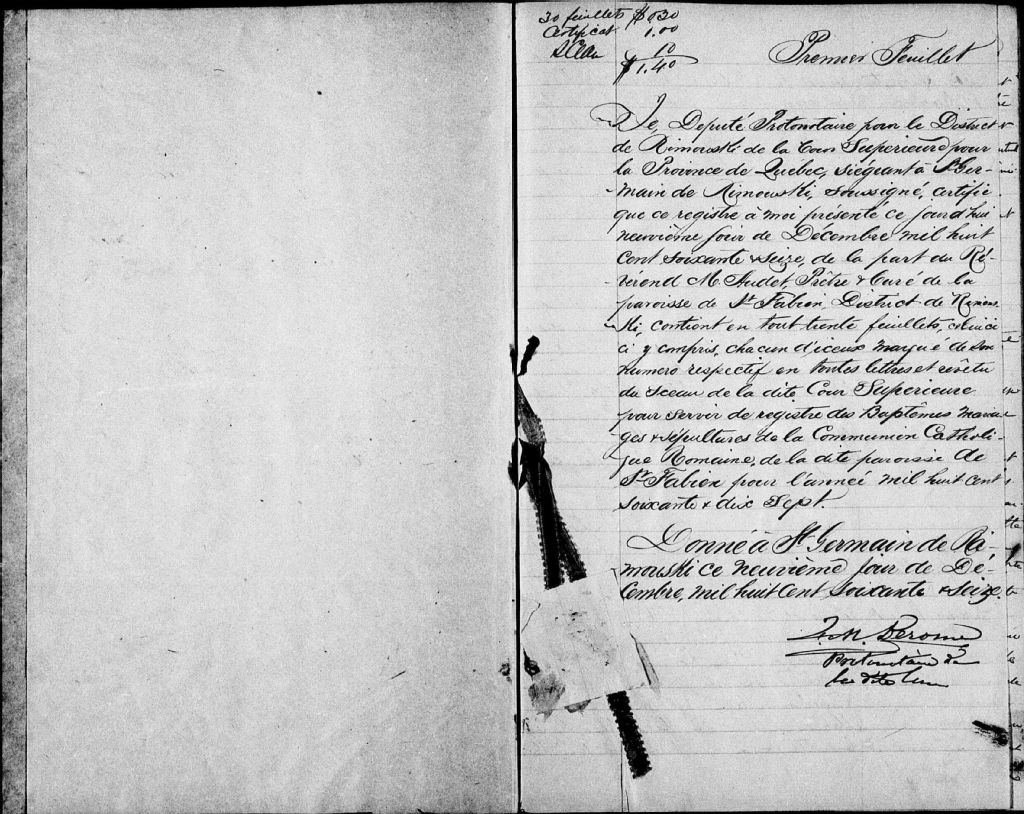 30 feuillets $0.30
Certificat 1.00
Sceau 10
$1.40
Premier Feuillet
Je, Deputé Protonotaire pour le District
de Rimouski de la Cour Superieure pour
la Province de Quebec, siégeant à St Ger-
main de Rimouski, soussigné, certifie
que ce registre à moi présenté ce jourd'hui
neuvième jour de Décembre mil huit
cent soixante & seize, de la part du Ré-
vérend M. Audet, Prêtre & Curé de la
paroisse de St Fabien District de Rimous
ki, contient en tout trente feuillets, celui ci
ci y compris, chacun d'iceux marqué de son
numero respectif en toutes lettres et revêtu
du sceau de la dite Cour Superieure
pour servir de registre des Baptêmes maria-
ges & sépultures de la Communion Catholi-
que Romaine, de la dite paroisse de
St Fabien pour l'anneé mil huit cent
soixante & dix sept.
Donné à St Germain de Ri-
mouski ce neuvième jour de Dé-
cembre, mil huit cent soixante & seize.
Derome
Protonotaire de
la dite Cour